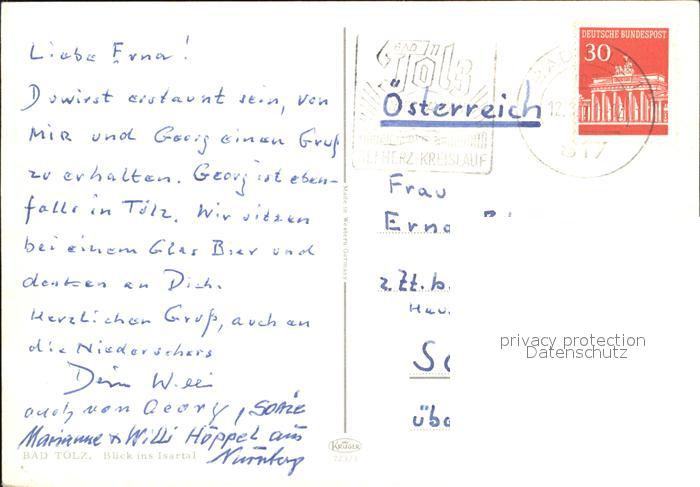 Liebe Erna!
Du wirst erstaunt sein, von
mir und Georg einen Gruß
zu erhalten. Georg ist eben-
falls in Tölz. Wir sitzen
bei einem Glas Bier und
denken an Dich.
Herzlichen Gruß, auch an
die Niederschers
Dein Willi
auch von Georg, sowie
Marianne + Willi Höppel aus
Nürnberg
BAD TÖLZ. Blick ins Isartal
Made in Western Germany
KRÜGER
BAD
Tölz
HERZ-KREISLAUF
DEUTSCHE BUNDESPOST
30
BAD
12.
817
Österreich
Frau
Erna
z. Zt. b.
Hau
Sc
üba
privacy protection
Datenschutz